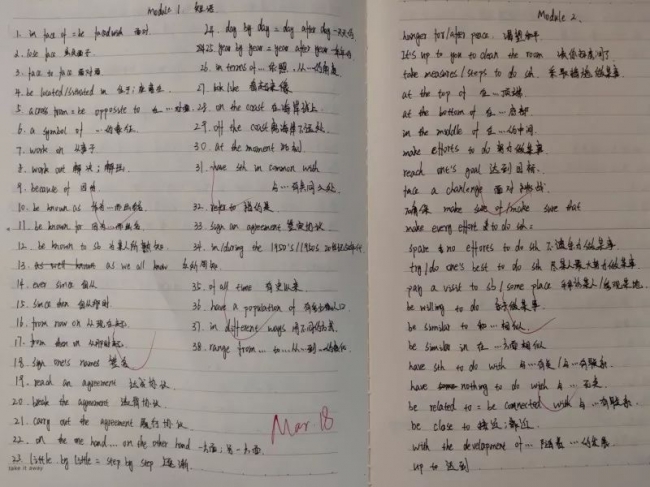 Module 1. 短语
1. in face of = be faced with 面对
2. lose face 丢面子
3. face to face 面对面
4. be located/situated in 位于; 坐落在
5. across from = be opposite to 在…对面
6. a symbol of …的象征
7. work on 从事于
8. work out 解决; 解出
9. because of 因为
10. be known as 作为…而出名
11. be known for 因为…而出名
12. be known to sb 为某人所熟知
13. as well known as we all know 众所周知
14. ever since 自从
15. since then 自从那时
16. from now on 从现在起
17. from then on 从那时起
18. sign one's names 签名
19. reach an agreement 达成协议
20. break the agreement 违背协议
21. carry out the agreement 履行协议
22. on the one hand ... on the other hand 一方面; 另一方面
23. little by little = step by step 逐渐
take it away
24. day by day = day after day 一天天的
25. year by year = year after year 一年年的
26. in terms of ... 依照, 从…的角度
27. look like 看起来像
28. on the coast 在海岸线上
29. off the coast 离海岸不远处
30. at the moment 此刻
31. have sth in common with
与…有共同之处
32. refer to 指的是
33. sign an agreement 签定协议
34. in/during the 1950's/1950s, 20世纪50年代
35. of all time 有史以来
36. have a population of 有…人口
37. in different ways 用不同的方式
38. range from ... to ... 从…到…
Mar. 18
Module 2.
hunger for/after peace. 渴望和平
It's up to you to clean the room 该你打扫房间了
take measures/steps to do sth 采取措施做某事
at the top of 在…顶端
at the bottom of 在…底部
in the middle of 在…的中间
make efforts to do 努力做某事
reach one's goal 达到目标
face a challenge 面对挑战
确保 make sure of/make sure that
make every effort to do sth =
spare no efforts to do sth 不遗余力做某事
try/do one's best to do sth 尽某人最大努力做某事
pay a visit to sb/some place 拜访某人/参观某地
be willing to do 自愿做某事
be similar to 和…相似
be similar in 在…方面相似
have sth to do with 与…有关/与…有联系
have nothing to do with 与…无关
be related to = be connected with 与…有联系
be close to 接近; 靠近
with the development of... 随着…的发展
up to 达到